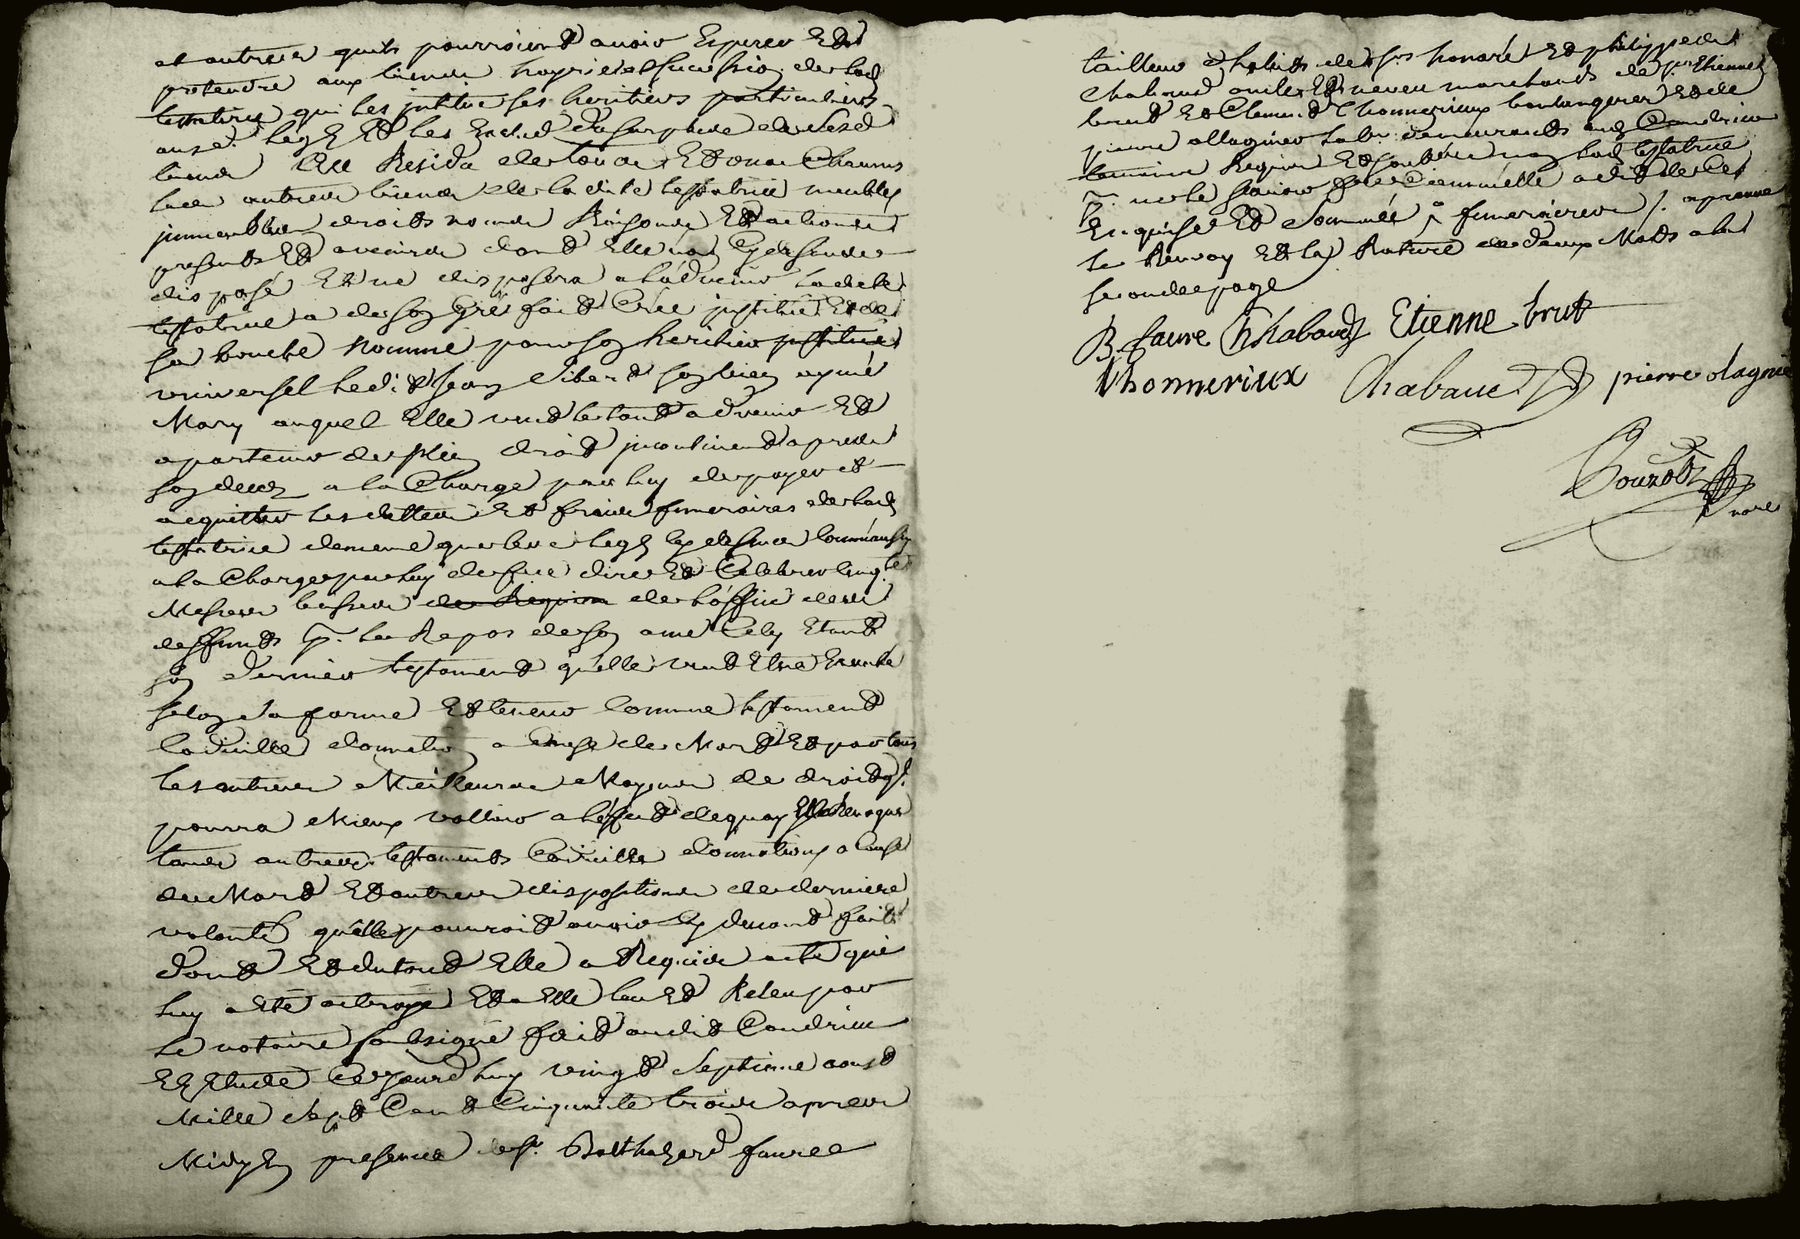 et autres quils pourroient avoir Esperer Et
pretendre aux biens hoyrie et succession de lad
testatrice qui les institue ses heritiers particuliers
aud. legs Et les Exclud du surplus de sesd
biens Au Residu de tous Et
les autres biens de la dite testatrice meubles
immeubles droits noms Raisons Et actions
presents Et avenir dont Elle na Cy dessus
disposé Et ne disposera a ladvenir ladite
testatrice a de son gré fait Crée institué Et de
sa bouche nommé pour son heritier institué
universel ledit Jean Sibert son bien aymé
Mary auquel Elle veut le tout advenir Et
apartenir de plein droit incontinent apres
son deces a la Charge par luy de payer et
acquitter les dettes Et frais funeraires de lad
testatrice de meme que les legs Cy dessus
a la Charge par luy de faire dire Et Celebrer
Messes basses de Requiem de loffice des
deffunts pr. le Repos de son ame Cely Etant
son dernier testament quelle veut Etre Executé
selon sa forme Et teneur Comme testament
Codicille donnation a Cause de Mort Et par tous
les autres Meilleurs Moyens de droit q.
pourra Mieux valloir a leffet de quoy Elle Revoque
tous autres testaments Codicilles donnations a Cause
de Mort Et autres dispositions de derniere
volonté quelle pourroit avoir Cy devant fait
dont Et du tout Elle a Requis acte qui
luy a Eté octroyé Et a Elle leu Et Releu par
le notaire soubsigné fait audit Condrieu
En Etude Ce jourdhuy vingt Septieme aoust
Mille Sept Cent Cinquante trois apres
Midy En presence de sr. Balthazard faure
tailleur dhabits de srs honoré Et philippe
Chaboud oncle Et neveu marchands de sr Etienne
brut Et Clement Thonnerieux boulangers Et de
pierre ollagnier labr. demeurants aud Condrieu
temoins Requis Et soubsignés non lad testatrice
pr. ne le sçavoir de ce
Enquise Et Sommée apreuve
le Renvoy Et la Rature de deux Mots a la
seconde page
B. faure Chabaud Etienne brut
thonneriux Chabaud pierre olagnié